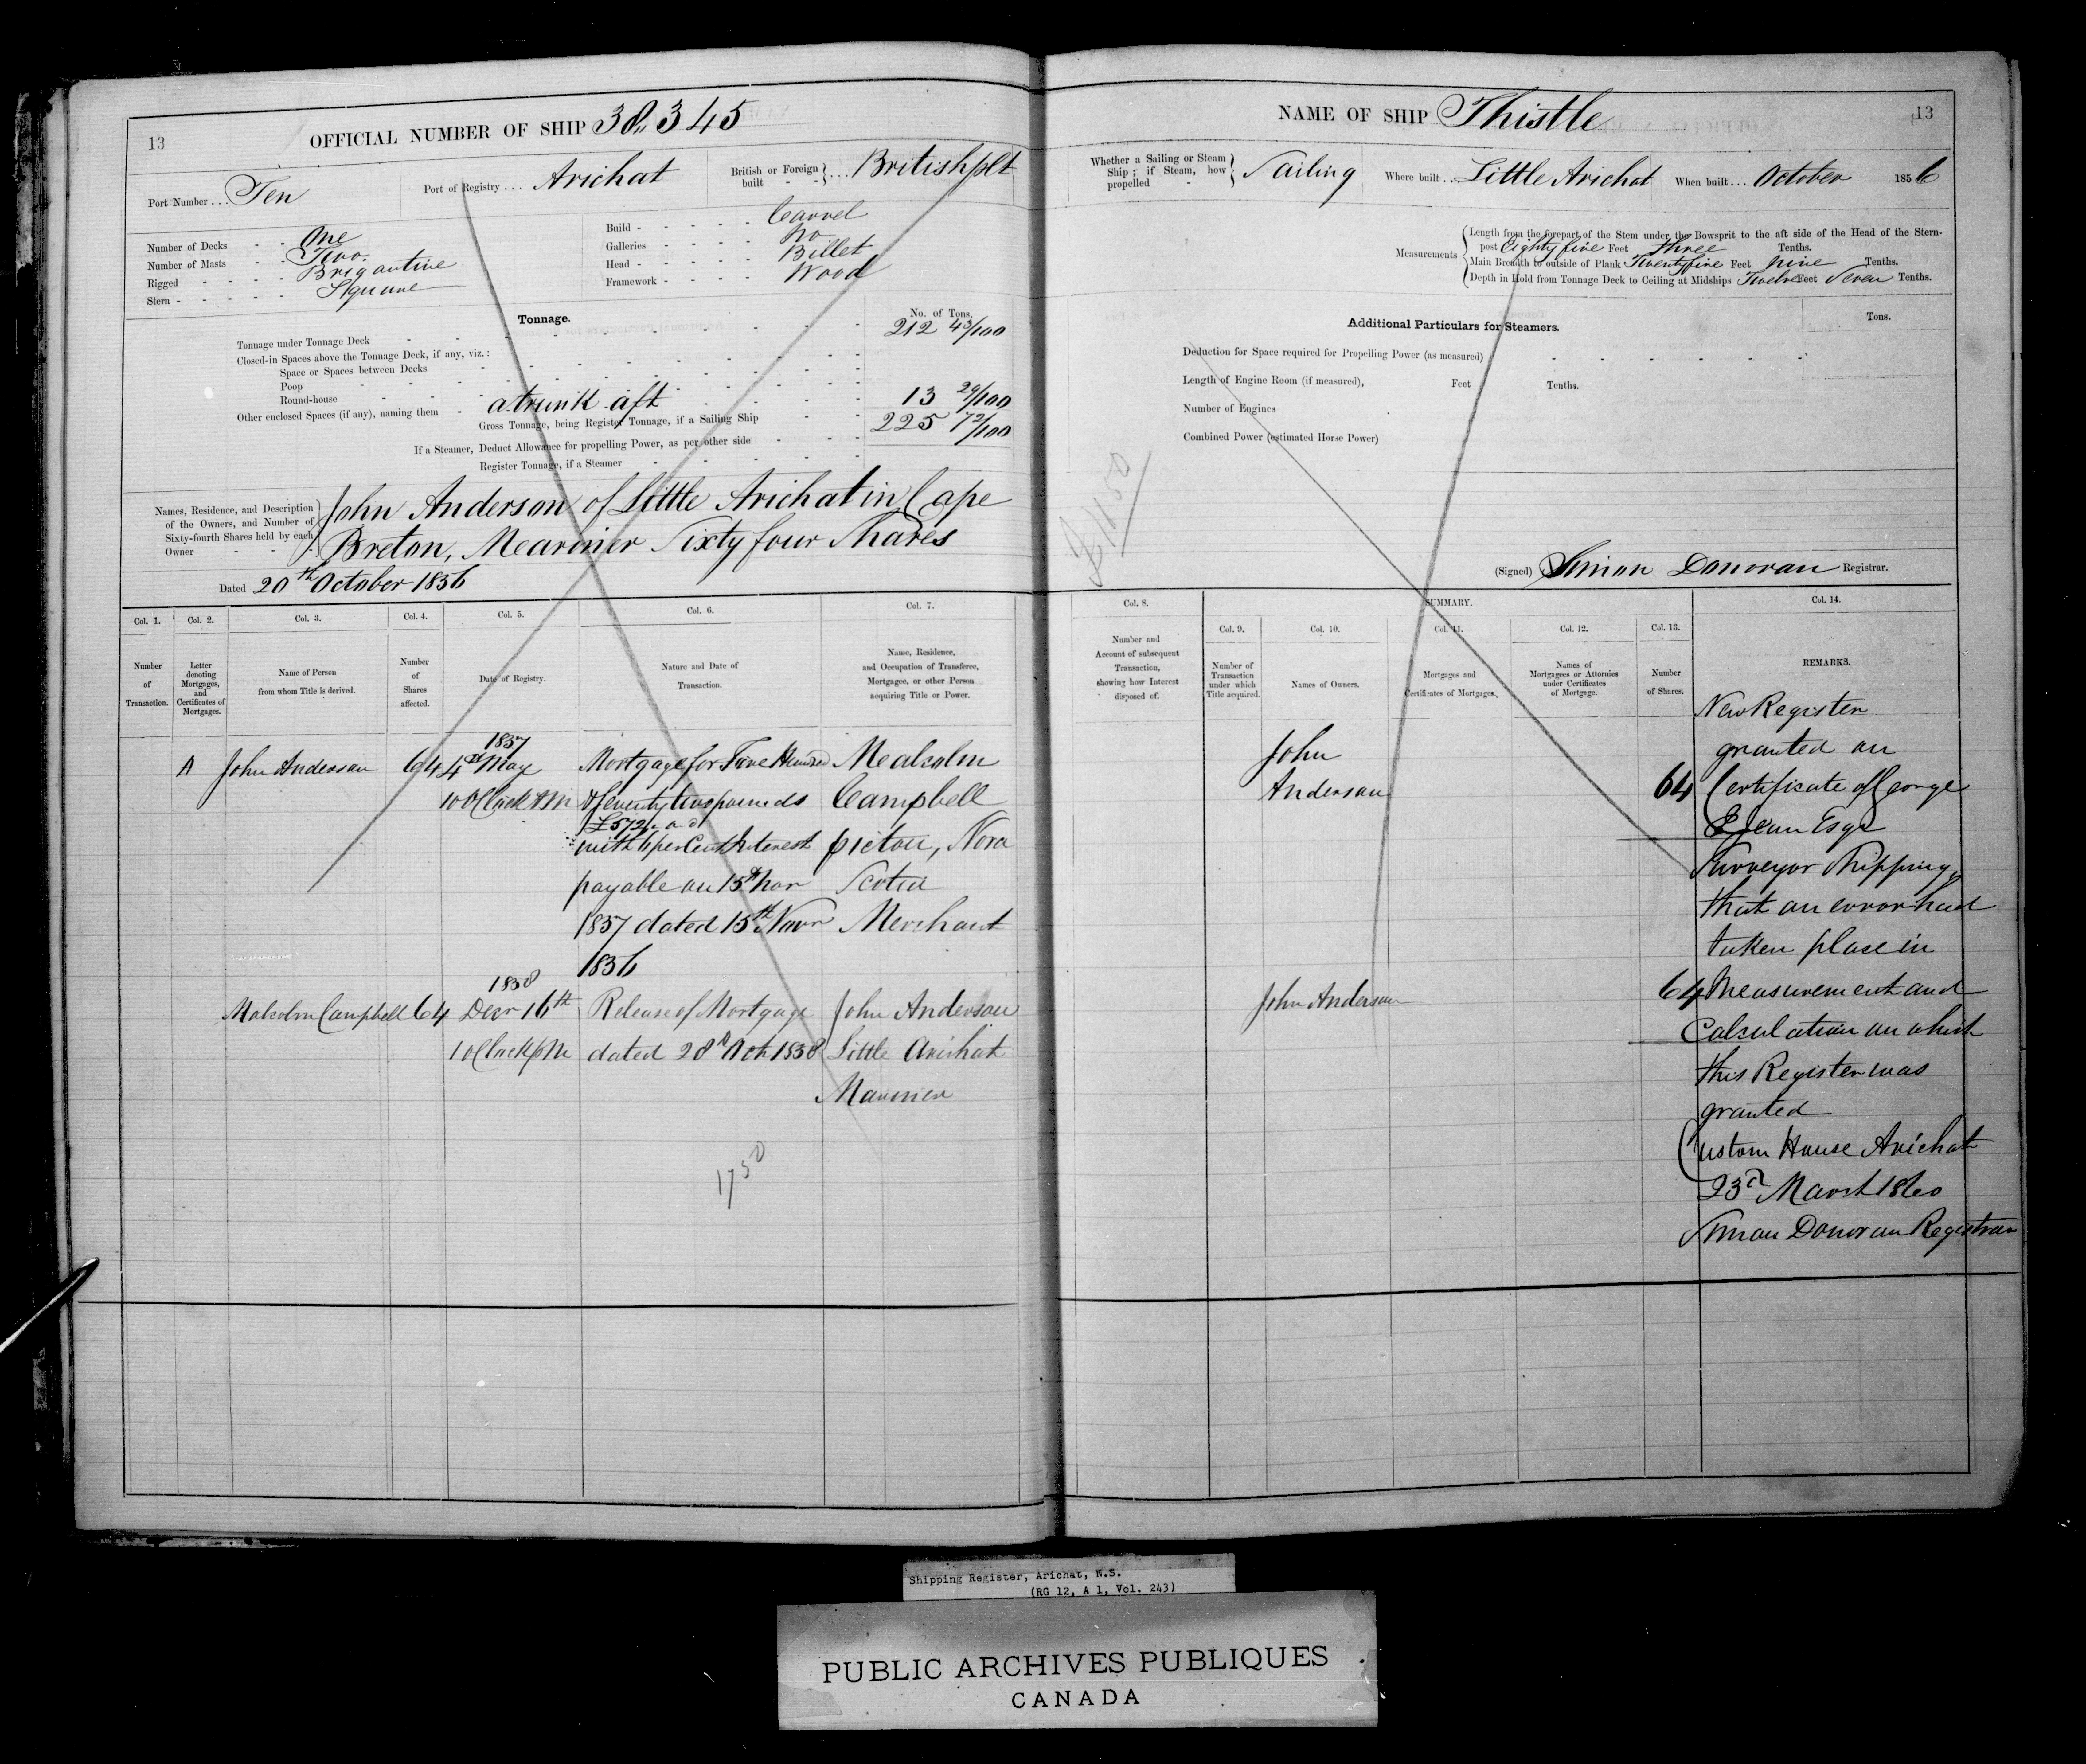 13
OFFICIAL NUMBER OF SHIP 38,345
Port Number . . . Ten
Port of Registry . . . Arichat
British or Foreign built } . . . British plt
Number of Decks - - One
Number of Masts - - Two
Rigged - - - - Brigantine
Stern - - - - - Square
Build - - - - - Carvel
Galleries - - - - No
Head - - - - - Billet
Framework - - - - Wood
Tonnage.
No. of Tons.
Tonnage under Tonnage Deck 212 43/100
Closed-in Spaces above the Tonnage Deck, if any, viz.:
Space or Spaces between Decks
Poop
Round-house
Other enclosed Spaces (if any), naming them - a trunk aft 13 29/100
Gross Tonnage, being Register Tonnage, if a Sailing Ship 225 72/100
If a Steamer, Deduct Allowance for propelling Power, as per other side
Register Tonnage, if a Steamer
Names, Residence, and Description of the Owners, and Number of Sixty-fourth Shares held by each Owner
John Anderson of Little Arichat in Cape
Breton, Mearinir Sixty four Shares
Dated 20th October 1856
Col. 1. Col. 2. Col. 3. Col. 4. Col. 5. Col. 6. Col. 7.
Number of Transaction.
Letter denoting Mortgages, and Certificates of Mortgages.
Name of Person from whom Title is derived.
Number of Shares affected.
Date of Registry.
Nature and Date of Transaction.
Name, Residence, and Occupation of Transferee, Mortgagee, or other Person acquiring Title or Power.
1857
A John Anderson 64 4th May Mortgage for Five Hundred Mealcolm
10 OClock AM & Seventy two pounds Campbell
£572
with 6 per Cent Interest pictou, Nova
payable on 15th Nov Scotia
1857 dated 15th Novr Merchant
1856
1858
Malcolm Campbell 64 Decr 16th Release of Mortgage John Anderson
1 OClock PM dated 28th Oct 1858 Little Arichat
Mariner
1750
NAME OF SHIP Thistle
13
Whether a Sailing or Steam Ship; if Steam, how propelled - } Sailing
Where built . . Little Arichat
When built . . . October 1856
Measurements
Length from the forepart of the Stem under the Bowsprit to the aft side of the Head of the Stern-
post Eighty five Feet three Tenths.
Main Breadth to outside of Plank Twenty five Feet nine Tenths.
Depth in Hold from Tonnage Deck to Ceiling at Midships Twelve Feet Seven Tenths.
Additional Particulars for Steamers.
Tons.
Deduction for Space required for Propelling Power (as measured)
Length of Engine Room (if measured), Feet Tenths.
Number of Engines
Combined Power (estimated Horse Power)
£1150
(Signed) Simon Donovan Registrar.
Col. 8. SUMMARY. Col. 14.
Col. 9. Col. 10. Col. 11. Col. 12. Col. 13.
Number and Account of subsequent Transaction, showing how Interest disposed of.
Number of Transaction under which Title acquired.
Names of Owners.
Mortgages and Certificates of Mortgages.
Names of Mortgagees or Attornies under Certificates of Mortgage.
Number of Shares.
REMARKS.
John
Anderson 64
John Anderson 64
New Register
granted on
Certificate of George
Esqr
Surveyor Shipping
that an error had
taken place in
Measurement and
Calculation on which
this Register was
granted
Custom House Arichat
23d March 1860
Simon Donovan Registrar
Shipping Register, Arichat, N.S.
(RG 12, A 1, Vol. 243)
PUBLIC ARCHIVES PUBLIQUES
CANADA